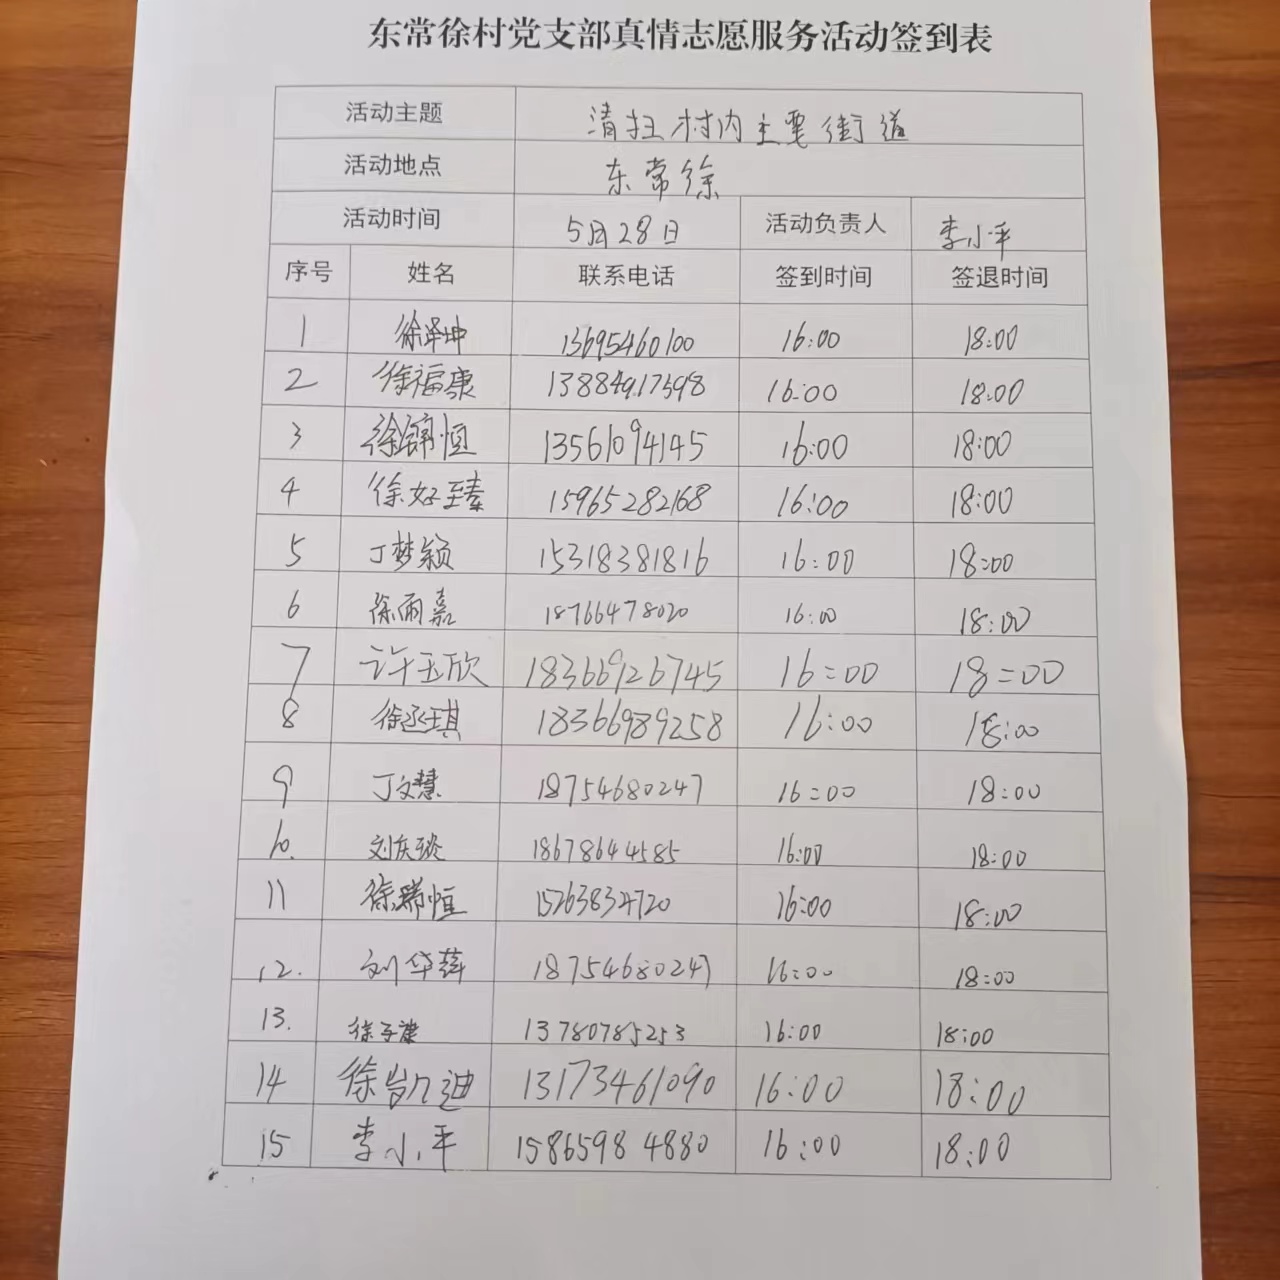 东常徐村党支部真情志愿服务活动签到表
活动主题 清扫村内主要街道
活动地点 东常徐
活动时间 5月28日 活动负责人 李小平
序号 姓名 联系电话 签到时间 签退时间
1 徐泽坤 13695460100 16:00 18:00
2 徐福康 13884917398 16:00 18:00
3 徐锦恒 13561094145 16:00 18:00
4 徐好臻 15965282168 16:00 18:00
5 丁梦颖 15318381816 16:00 18:00
6 徐雨嘉 18766478020 16:00 18:00
7 许玉欣 18366926745 16:00 18:00
8 徐丞琪 18366989258 16:00 18:00
9 丁文慧 18754680247 16:00 18:00
10. 刘庆琰 18678644585 16:00 18:00
11 徐瑞恒 15263834720 16:00 18:00
12. 刘华莛 18754680247 16:00 18:00
13. 徐子康 13780785253 16:00 18:00
14 徐凯迪 13173461090 16:00 18:00
15 李小平 15865984880 16:00 18:00